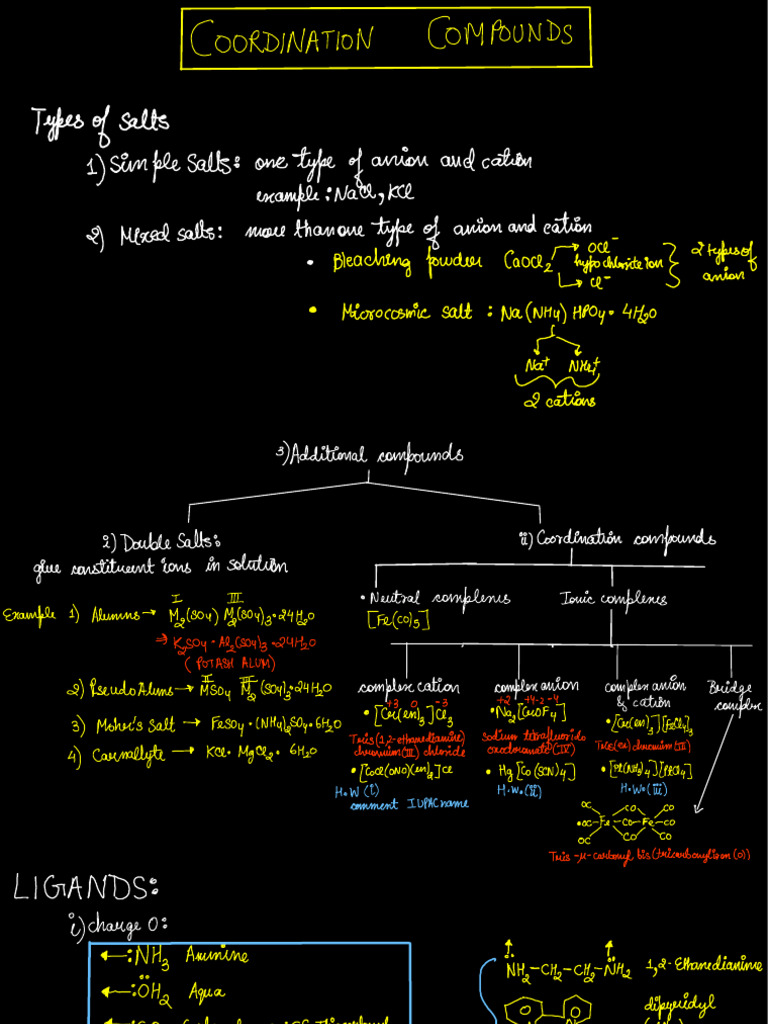 COORDINATION COMPOUNDS
Types of salts
1) Simple Salts: one type of anion and cation
example: NaCl, KCl
2) Mixed salts: more than one type of anion and cation
• Bleaching powder CaOCl₂ → OCl⁻ hypochlorite ion
→ Cl⁻
2 types of anion
• Microcosmic salt : Na(NH₄)HPO₄•4H₂O
Na⁺ NH₄⁺
2 cations
3) Additional compounds
2) Double Salts:
give constituent ions in solution
Example 1) Alumns → M₂(SO₄) M₂(SO₄)₃•24H₂O
I III
⇒ K₂SO₄•Al₂(SO₄)₃•24H₂O
(POTASH ALUM)
2) Pseudo Alums → MSO₄ M₂(SO₄)₃•24H₂O
II III
3) Moher's Salt → FeSO₄•(NH₄)₂SO₄•6H₂O
4) Carnallyte → KCl•MgCl₂•6H₂O
ii) Coordination compounds
• Neutral complexes
[Fe(CO)₅]
Ionic complexes
complex cation
+3 0 -3
• [Cr(en)₃]Cl₃
Tris(1,2-ethanediamine)
chromium(III) chloride
• [CoCl(ONO)(en)₂]Cl
H.W (i)
comment IUPAC name
complex anion
+2 +4-2-4
• Na₂[CrOF₄]
sodium tetrafluorido
oxochromate(IV)
• Hg[Co(SCN)₄]
H.W.(ii)
complex anion
& cation
• [Cr(en)₃][FeCl₆]
Tris(en) chromium(III)
• [Pt(NH₃)₄][PtCl₄]
H.W.(iii)
Bridge
complex
OC CO CO
•OC-Fe-CO-Fe-CO
OC CO CO
Tris-μ-carbonyl bis(tricarbonyliron(0))
LIGANDS:
i) charge 0:
← :NH₃ Ammine
← :ÖH₂ Aqua
N̈H₂-CH₂-CH₂-N̈H₂ 1,2-Ethanediamine
dipyridyl